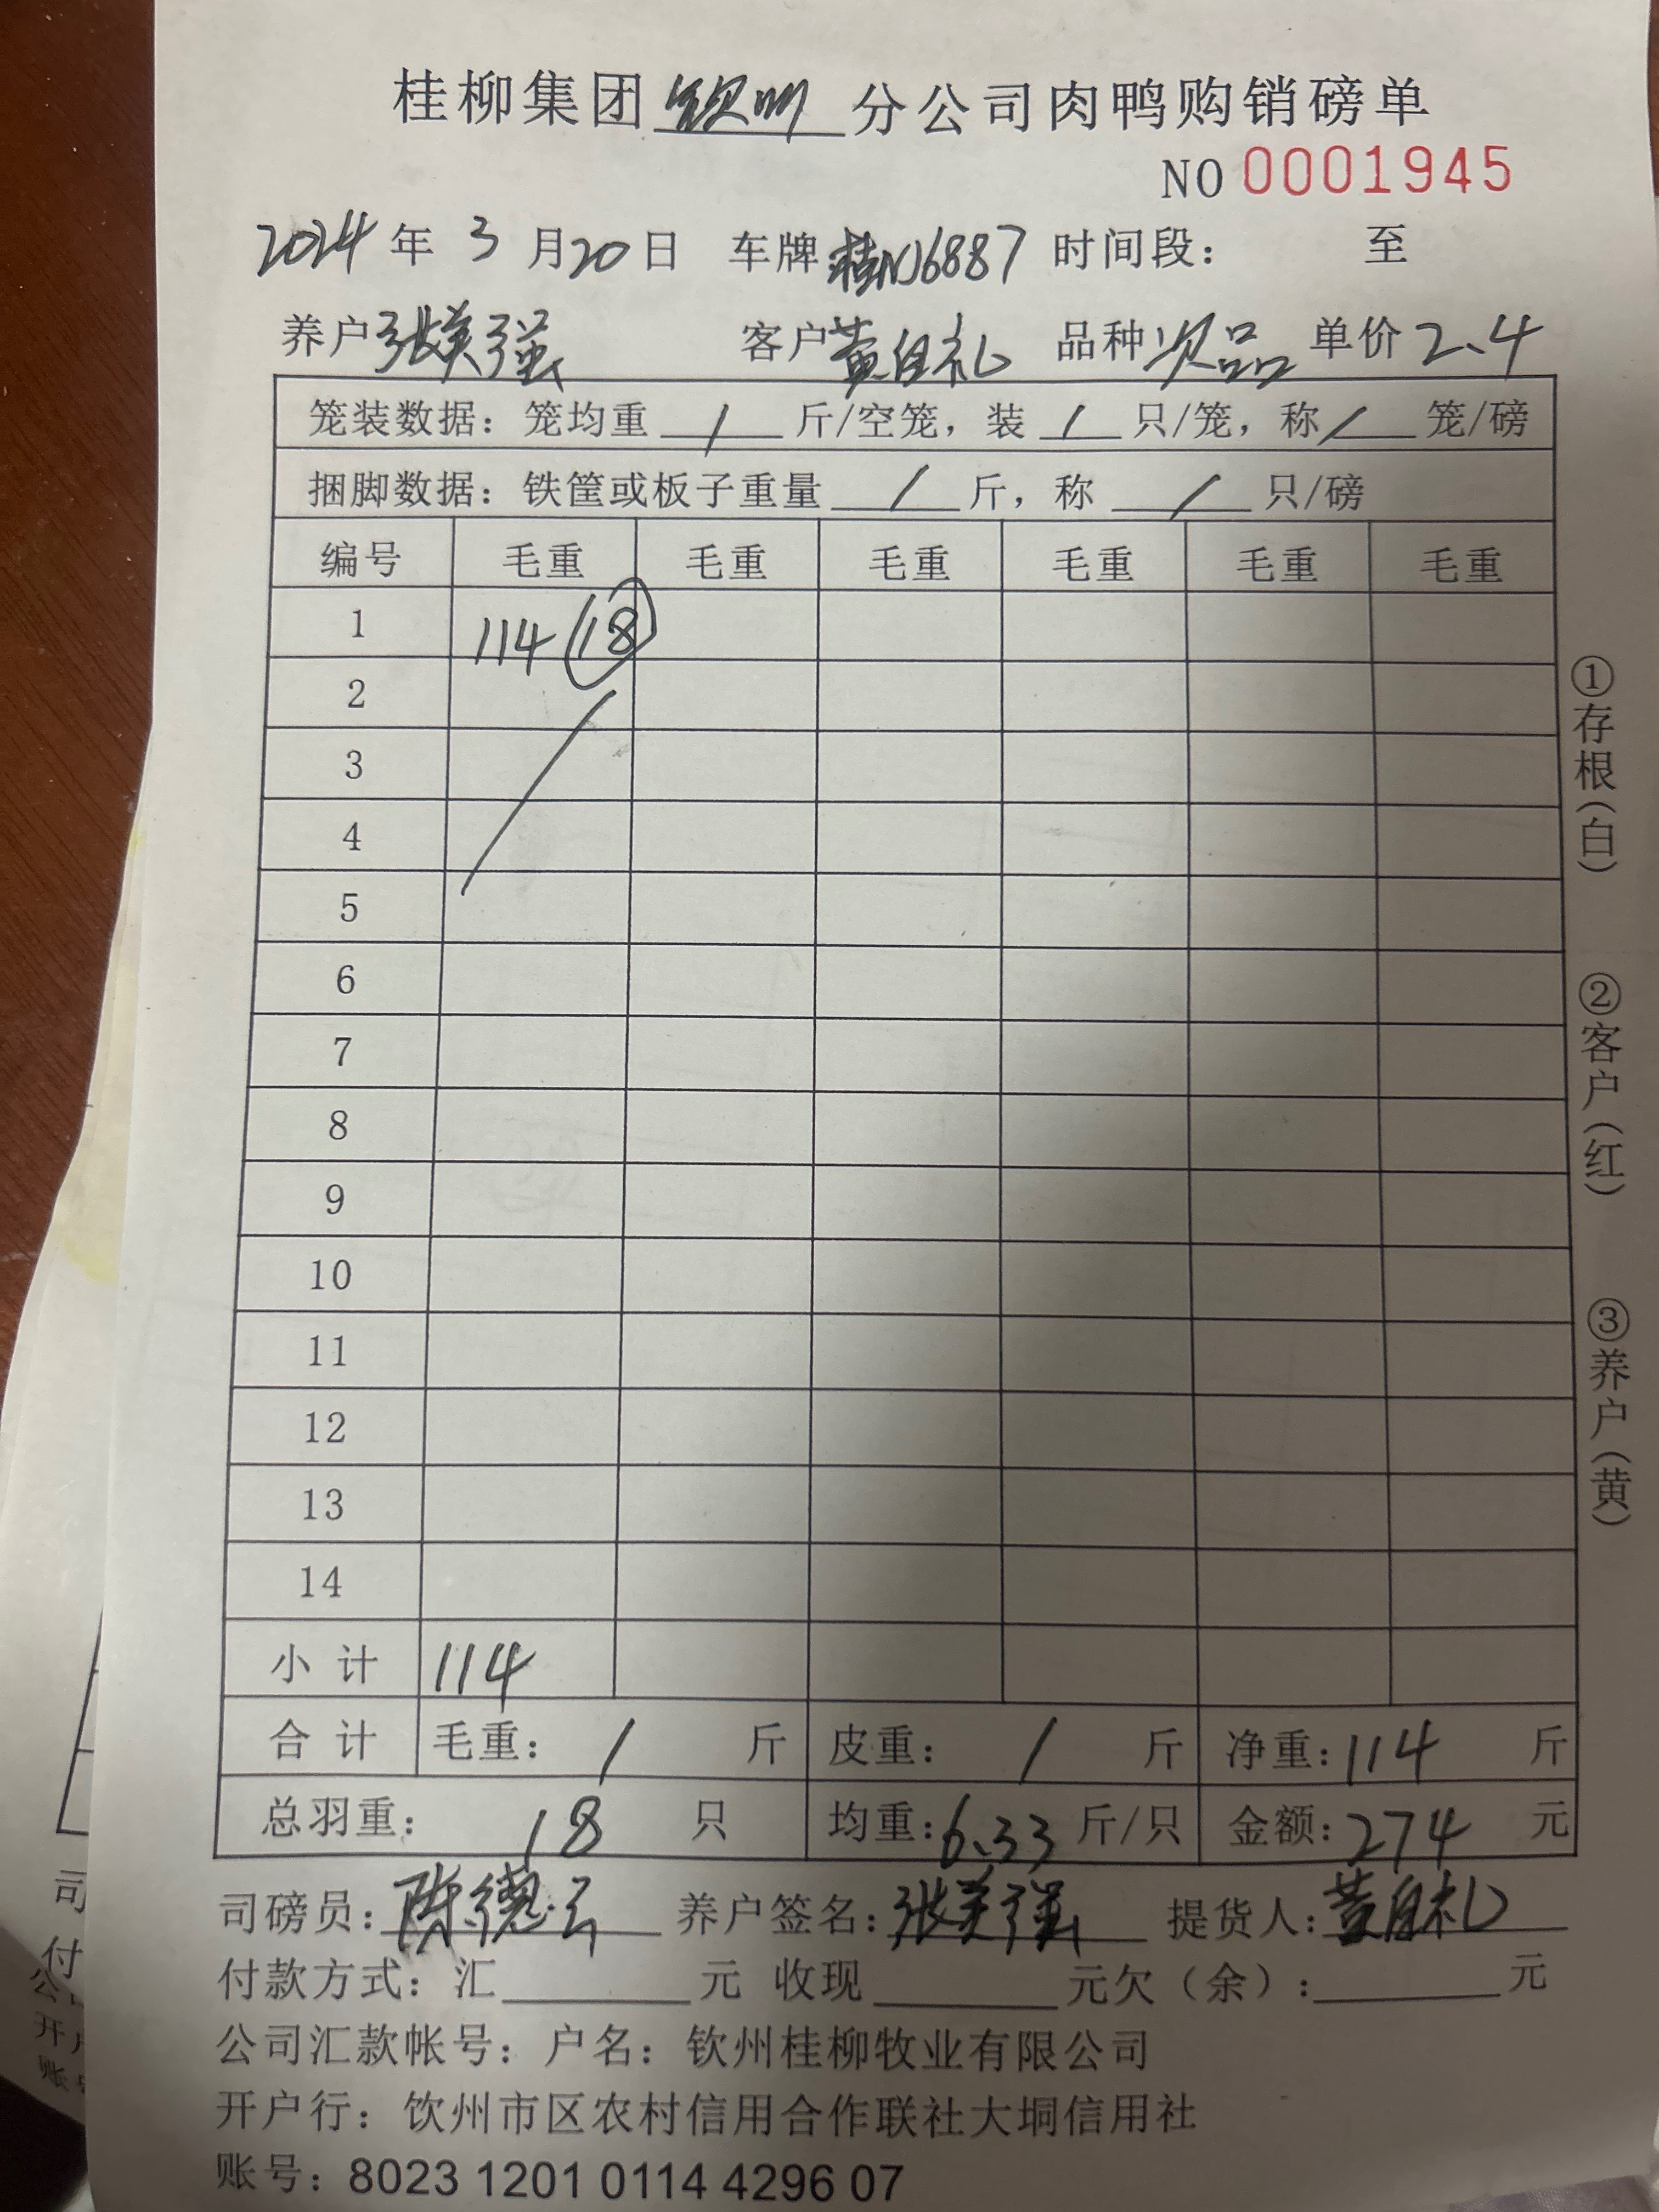 桂柳集团钦州分公司肉鸭购销磅单
NO 0001945
2024年3月20日 车牌桂N16887 时间段： 至
养户张美强 客户黄自礼 品种次品 单价2.4
笼装数据：笼均重/斤/空笼，装/只/笼，称/笼/磅
捆脚数据：铁筐或板子重量/斤，称/只/磅
编号 毛重 毛重 毛重 毛重 毛重 毛重
1 114 (18)
2
3
4
5
6
7
8
9
10
11
12
13
14
小计 114
合计 毛重：/斤 皮重：/斤 净重：114斤
总羽重：18只 均重：6.33斤/只 金额：274元
司磅员：陈德云 养户签名：张美强 提货人：黄自礼
付款方式：汇______元 收现______元欠（余）：______元
公司汇款帐号：户名：钦州桂柳牧业有限公司
开户行：钦州市区农村信用合作联社大垌信用社
账号：8023 1201 0114 4296 07
①存根（白）
②客户（红）
③养户（黄）
司
付
公
开户
账号